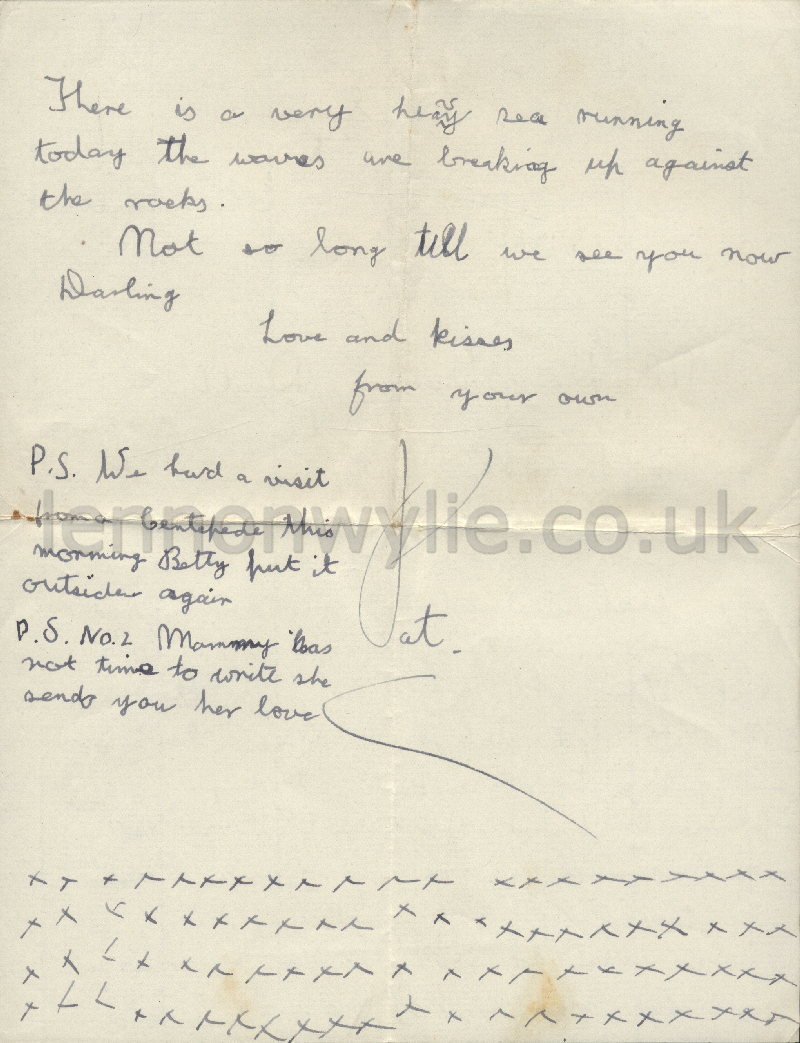 There is a very hevy sea running
today the waves are breaking up against
the rocks.
Not so long till we see you now
Darling
Love and kisses
from your own
Pat.
P.S. We had a visit
from a Centepede this
morning Betty put it
outside again
P.S. No.2 Mammy has
not time to write she
sends you her love
lennonwylie.co.uk